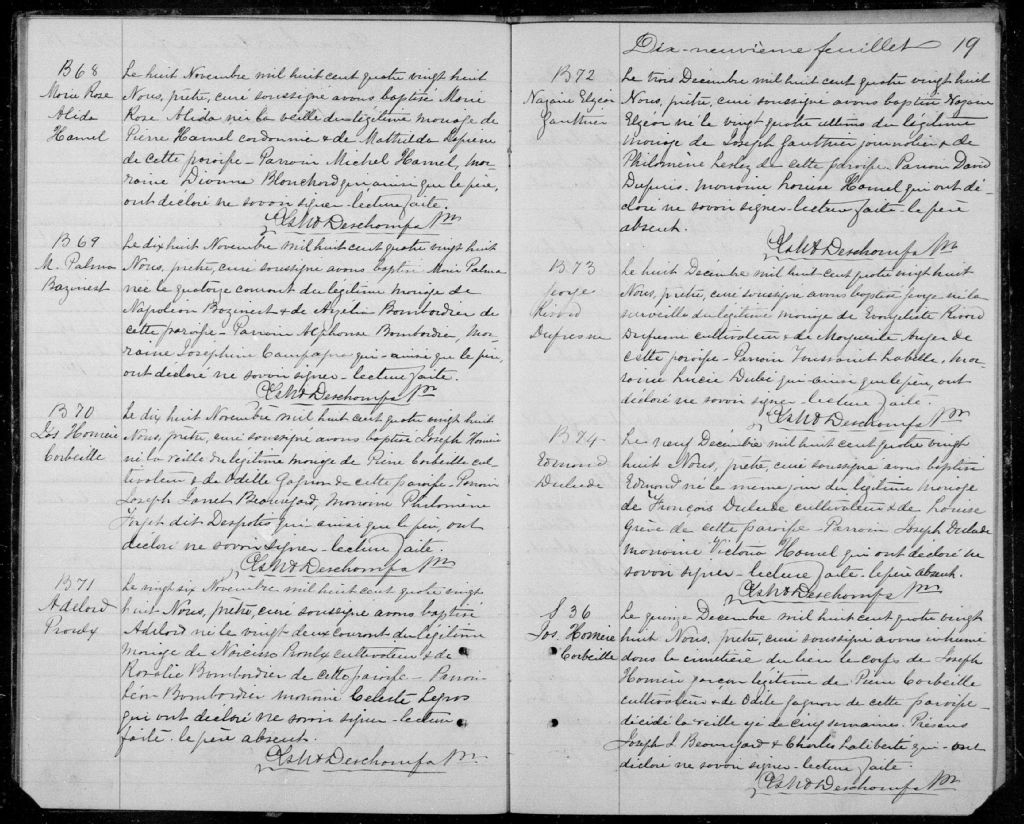 B 68
Marie Rose
Alida
Hamel
Le huit Novembre mil huit cent quatre vingt huit
Nous, prêtre, curé soussigné avons baptisé Marie
Rose Alida née la veille du légitime mariage de
Pierre Hamel cordonnier & de Mathilde Lapierre
de cette paroisse - Parrain Michel Hamel, mar-
raine Divina Blanchard qui ainsi que le père,
ont déclaré ne savoir signer - lecture faite.
Deschamps Ptr
B 69
M. Palma
Bazinet
Le dix huit Novembre mil huit cent quatre vingt huit
Nous, prêtre, curé soussigné avons baptisé Marie Palma
née le quatorze courant du légitime mariage de
Napoléon Bazinet & de Azélie Bombardier de
cette paroisse - Parrain Alphonse Bombardier, mar-
raine Josephine Campagna qui - ainsi que le père,
ont déclaré ne savoir signer - lecture faite.
Deschamps Ptr
B 70
Jos Homère
Corbeille
Le dix huit Novembre mil huit cent quatre vingt huit
Nous, prêtre, curé soussigné avons baptisé Joseph Homère
né la veille du légitime mariage de Pierre Corbeille cul-
tivateur & de Odille Gagnon de cette paroisse - Parrain
Joseph Janet Beauregard, Marraine Philomène
Forget dit Despotes qui ainsi que le père, ont
déclaré ne savoir signer - lecture faite.
Deschamps Ptr
B 71
Adélard
Proulx
Le vingt six Novembre mil huit cent quatre vingt
huit Nous, prêtre, curé soussigné avons baptisé
Adélard né le vingt deux courant du légitime
mariage de Narcisse Proulx cultivateur & de
Rosalie Bombardier de cette paroisse - Parrain
Léon Bombardier marraine Celeste Legros
qui ont déclaré ne savoir signer - lecture
faite - le père absent.
Deschamps Ptr
Dix-neuvième feuillet 19
B 72
Nazaire Elzéar
Gauthier
Le trois Décembre mil huit cent quatre vingt huit
Nous, prêtre, curé soussigné avons baptisé Nazaire
Elzéar né le vingt quatre ultimo du légitime
mariage de Joseph Gauthier journalier & de
Philomène de cette paroisse. Parrain David
Dupuis. Marraine Louise Hamel qui ont dé-
claré ne savoir signer - lecture faite - le père
absent.
Deschamps Ptr
B 73
Rivard
Dufresne
Le huit Décembre mil huit cent quatre vingt huit
Nous, prêtre, curé soussigné avons baptisé né la
surveille du légitime mariage de Evangeliste Rivard
Dufresne cultivateur & de Marguerite Auger de
cette paroisse - Parrain Toussaint Labelle, Mar-
raine Lucie Dubé qui - ainsi que le père, ont
déclaré ne savoir signer - lecture faite.
Deschamps Ptr
B 74
Edmond
Dulude
Le neuf Décembre mil huit cent quatre vingt
huit Nous, prêtre, curé soussigné avons baptisé
Edmond né le même jour du légitime mariage
de François Dulude cultivateur & de Louise
de cette paroisse - Parrain Joseph Dulude
marraine Victoria Hamel qui ont déclaré ne
savoir signer - lecture faite - le père absent.
Deschamps Ptr
S 36
Jos. Homère
Corbeille
Le quinze Décembre mil huit cent quatre vingt
huit Nous, prêtre, curé soussigné avons inhumé
dans le cimetière du lieu le corps de Joseph
Homère garçon légitime de Pierre Corbeille
cultivateur & de Odile Gagnon de cette paroisse -
décédé la veille agé de cinq semaines. Présens
Joseph J. Beauregard & Charles Laliberté qui - ont
déclaré ne savoir signer - lecture faite.
Deschamps Ptr